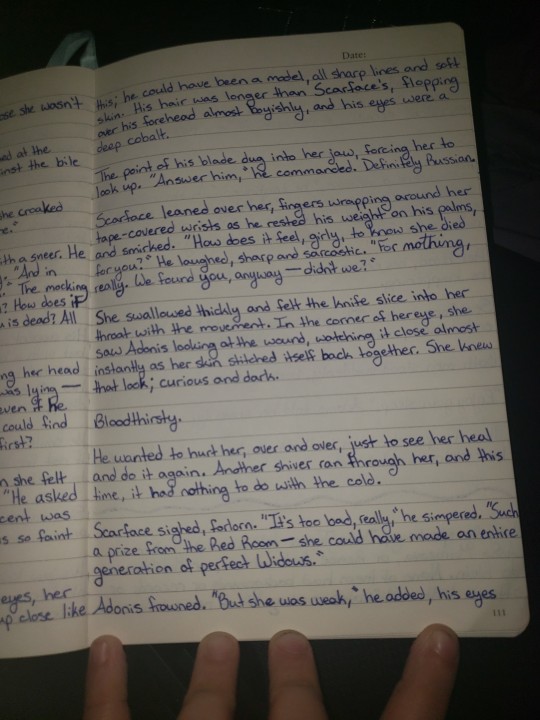 ose she wasn't
ed at the
inst the bile
he croaked
e."
ith a sneer. He
"And in
The mocking
? How does it
is dead? All
ng her head
was lying —
even if he
could find
first?
n she felt
"He asked
cent was
s so faint
eyes, her
up close like
Date:
this; he could have been a model, all sharp lines and soft
skin. His hair was longer than Scarface's, flopping
over his forehead almost boyishly, and his eyes were a
deep cobalt.
The point of his blade dug into her jaw, forcing her to
look up. "Answer him," he commanded. Definitely Russian.
Scarface leaned over her, fingers wrapping around her
tape-covered wrists as he rested his weight on his palms,
and smirked. "How does it feel, girly, to know she died
for you?" He laughed, sharp and sarcastic. "For nothing,
really. We found you, anyway — didn't we?"
She swallowed thickly and felt the knife slice into her
throat with the movement. In the corner of her eye, she
saw Adonis looking at the wound, watching it close almost
instantly as her skin stitched itself back together. She knew
that look; curious and dark.
Bloodthirsty.
He wanted to hurt her, over and over, just to see her heal
and do it again. Another shiver ran through her, and this
time, it had nothing to do with the cold.
Scarface sighed, forlorn. "It's too bad, really," he simpered. "Such
a prize from the Red Room — she could have made an entire
generation of perfect Widows."
Adonis frowned. "But she was weak," he added, his eyes
111